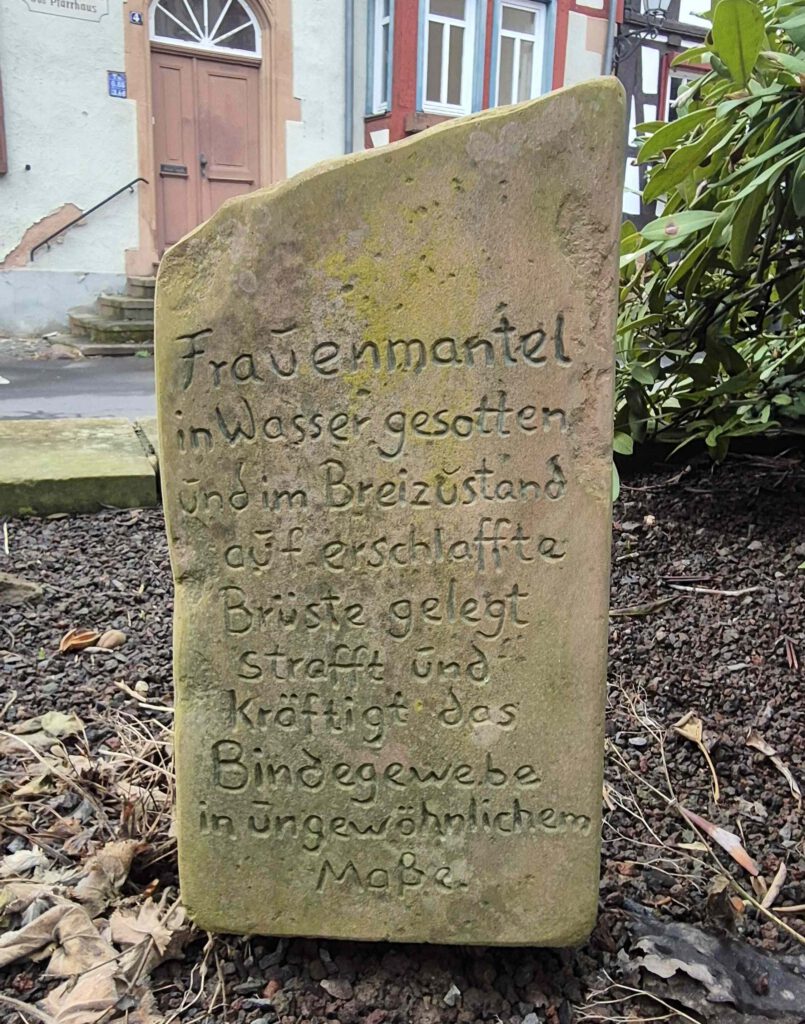 das Pfarrhaus
4
Frauenmantel
in Wasser gesotten
und im Breizustand
auf erschlaffte
Brüste gelegt
strafft und
Kräftigt das
Bindegewebe
in ungewöhnlichem
Maße.